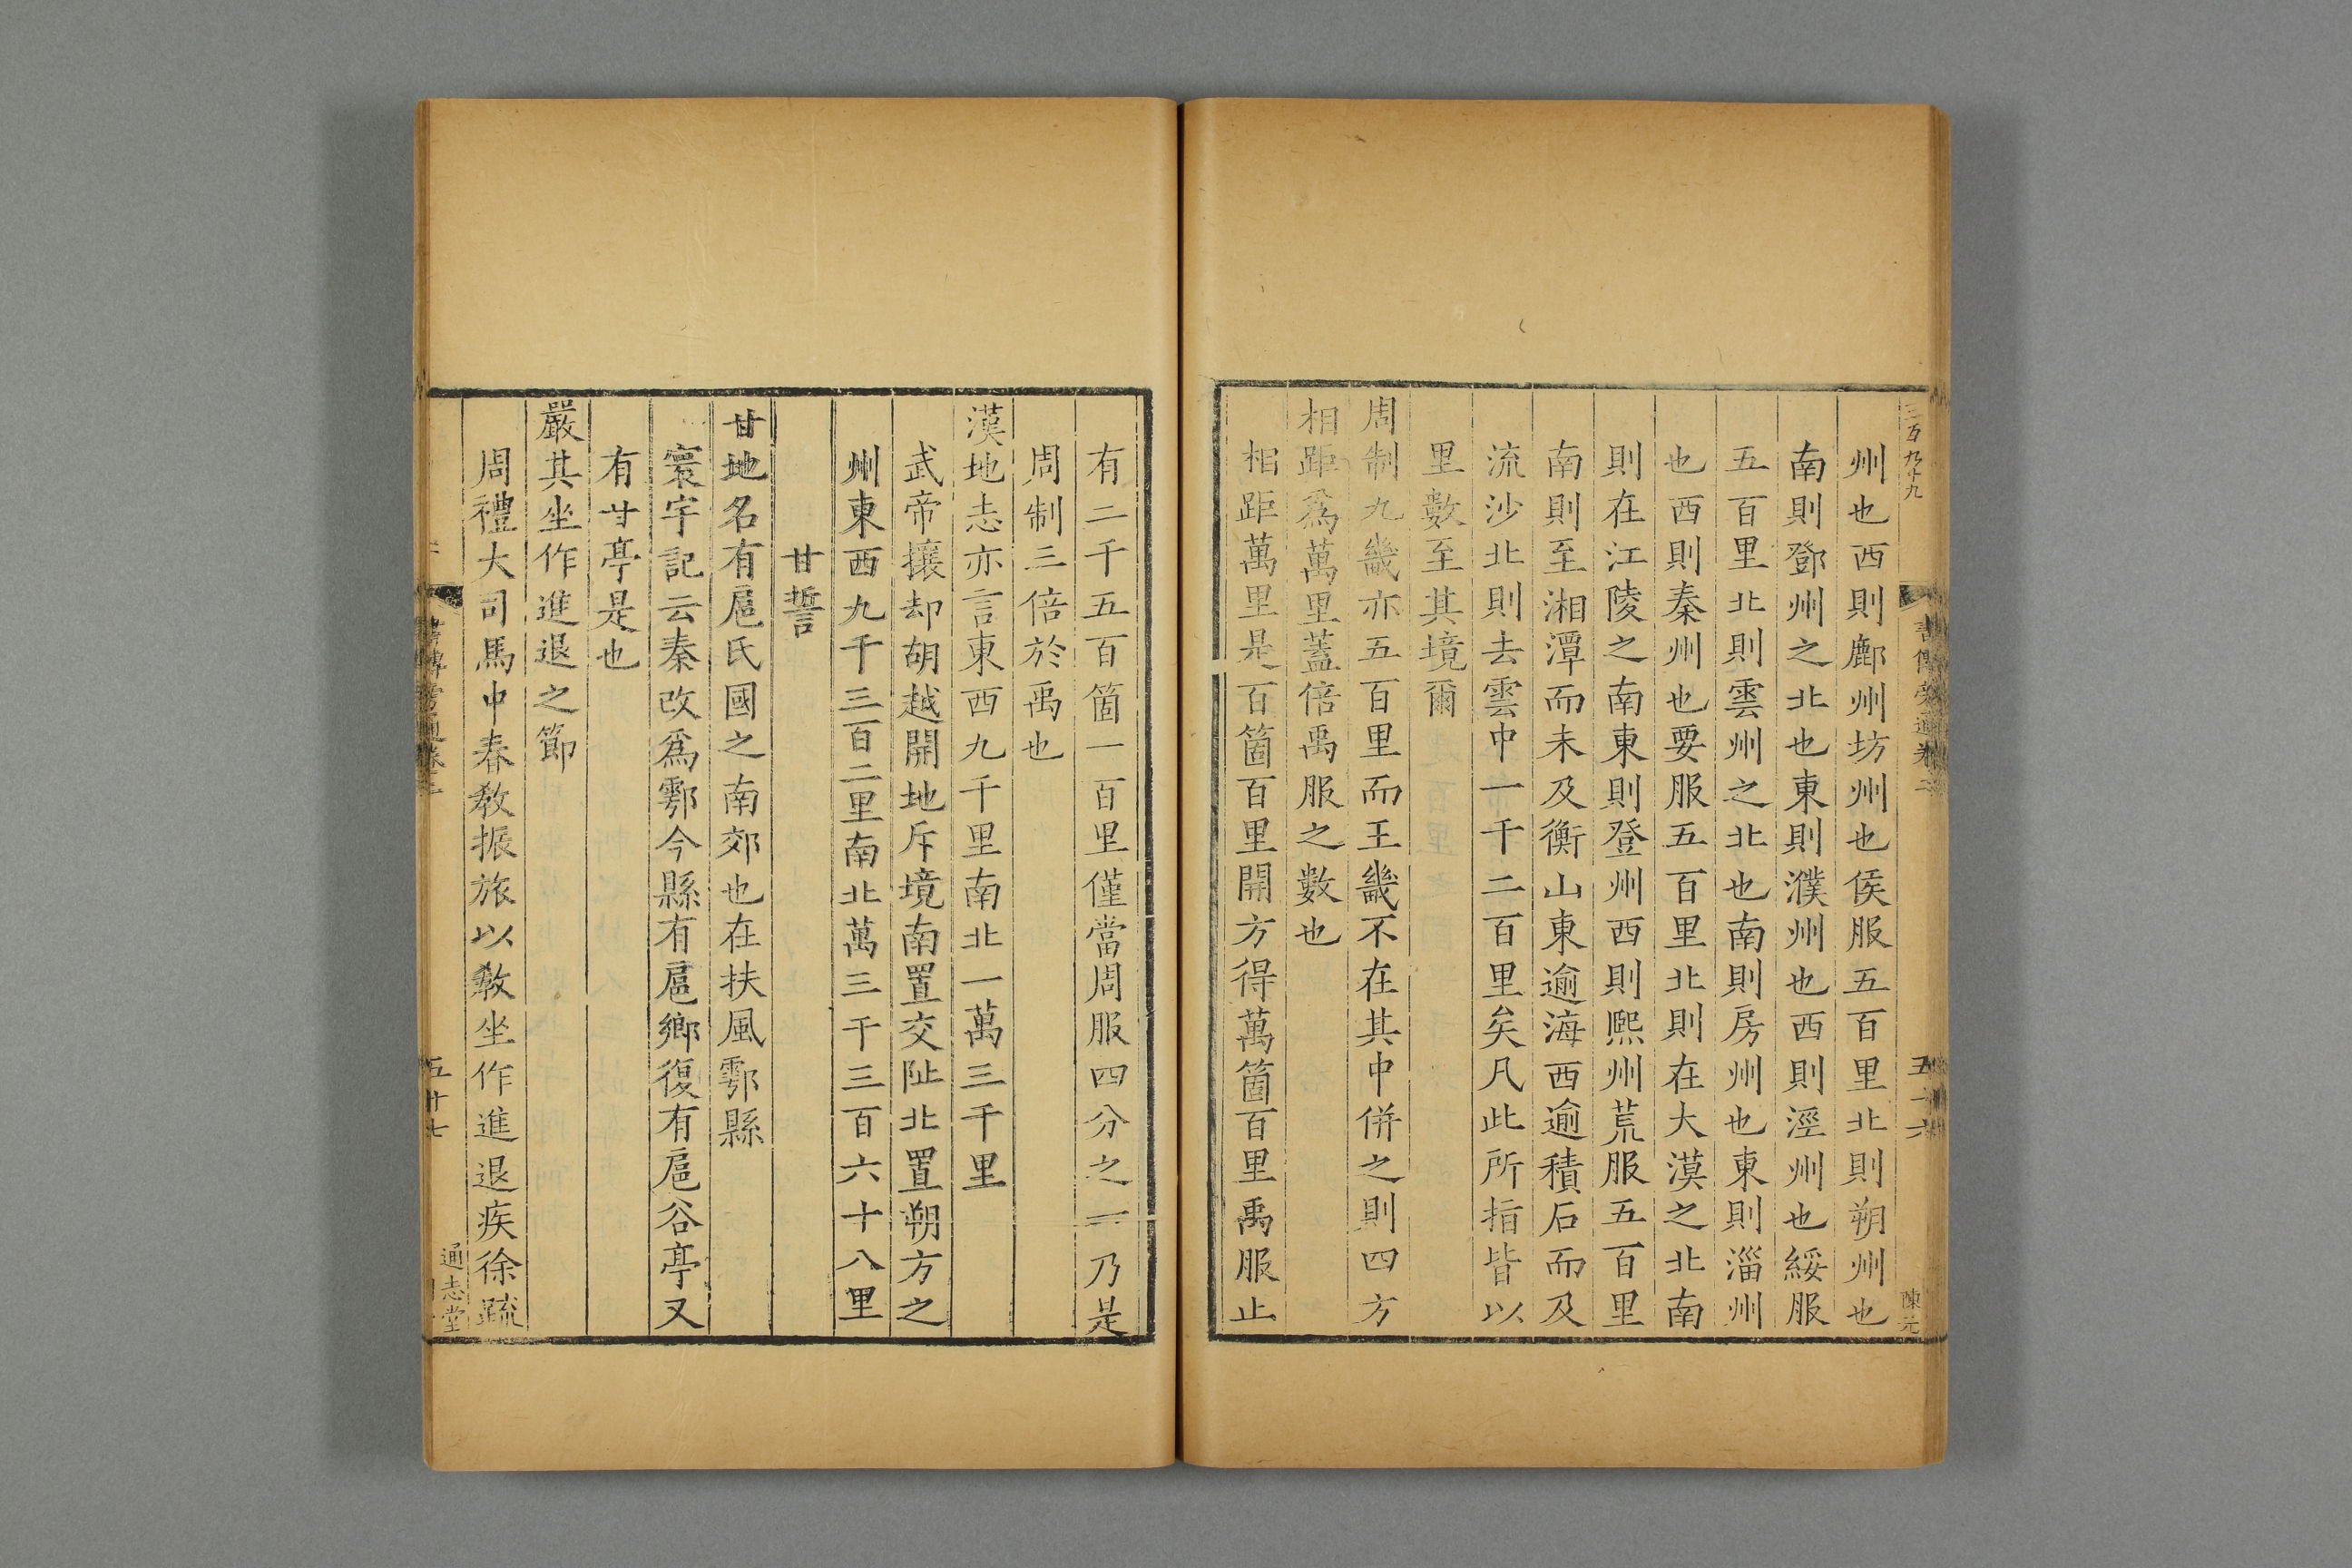 三百九十九
書傳旁通卷二
五十六
陳元
州也西則鄜州坊州也侯服五百里北則朔州也
南則鄧州之北也東則濮州也西則涇州也綏服
五百里北則雲州之北也南則房州也東則淄州
也西則秦州也要服五百里北則在大漠之北南
則在江陵之南東則登州西則熙州荒服五百里
南則至湘潭而未及衡山東逾海西逾積石而及
流沙北則去雲中一千二百里矣凡此所指皆以
里數至其境爾
周制九畿亦五百里而王畿不在其中併之則四方
相距爲萬里蓋倍禹服之數也
相距萬里是百箇百里開方得萬箇百里禹服止
有二千五百箇一百里僅當周服四分之一乃是
周制三倍於禹也
漢地志亦言東西九千里南北一萬三千里
武帝攘却胡越開地斥境南置交阯北置朔方之
州東西九千三百二里南北萬三千三百六十八里
甘誓
甘地名有扈氏國之南郊也在扶風鄠縣
寰宇記云秦改爲鄠今縣有扈鄉復有扈谷亭又
有甘亭是也
嚴其坐作進退之節
周禮大司馬中春敎振旅以敎坐作進退疾徐疏
五十七
通志堂